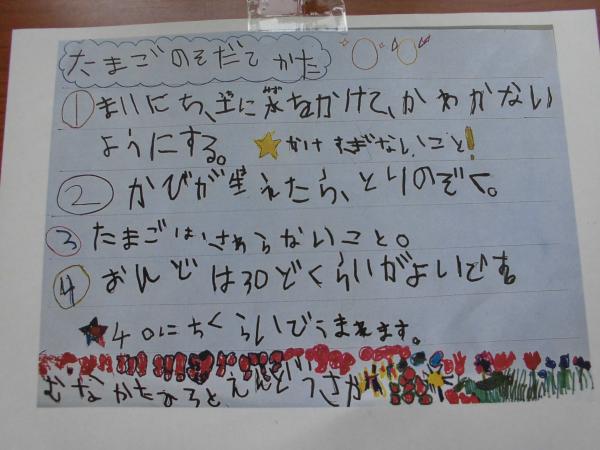 たまごのそだてかた
①まいにち、土に水をかけて、かわかない
ようにする。★かけすぎないこと!
②かびが生えたら、とりのぞく。
③たまごは、さわらないこと。
④おんどは30どくらいがよいです。
★40にちくらいでうまれます。
むなかたひろと えんどうさ